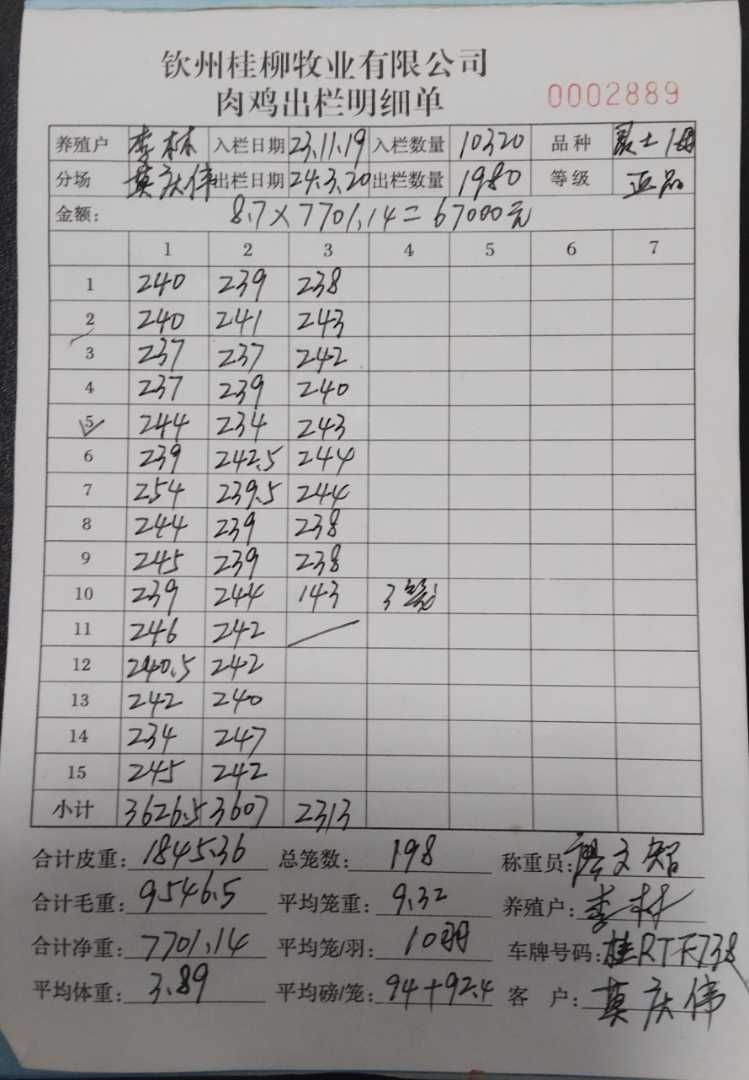 钦州桂柳牧业有限公司
肉鸡出栏明细单 0002889
养殖户 李林 入栏日期 23.11.19 入栏数量 10320 品种
分场 莫庆伟 出栏日期 24.3.20 出栏数量 1980 等级 正品
金额: 8.7×7701.14=67000元
1 2 3 4 5 6 7
1 240 239 238
2 240 241 243
3 237 237 242
4 237 239 240
5 244 234 243
6 239 242.5 244
7 254 239.5 244
8 244 239 238
9 245 239 238
10 239 244 143 3笼
11 246 242
12 240.5 242
13 242 240
14 234 247
15 245 242
小计 3626.5 3607 2313
合计皮重: 1845.36 总笼数: 198 称重员: 文智
合计毛重: 9546.5 平均笼重: 9.32 养殖户: 李林
合计净重: 7701.14 平均笼/羽: 10羽 车牌号码: 桂R
平均体重: 3.89 平均磅/笼: 94+92.4 客户: 莫庆伟